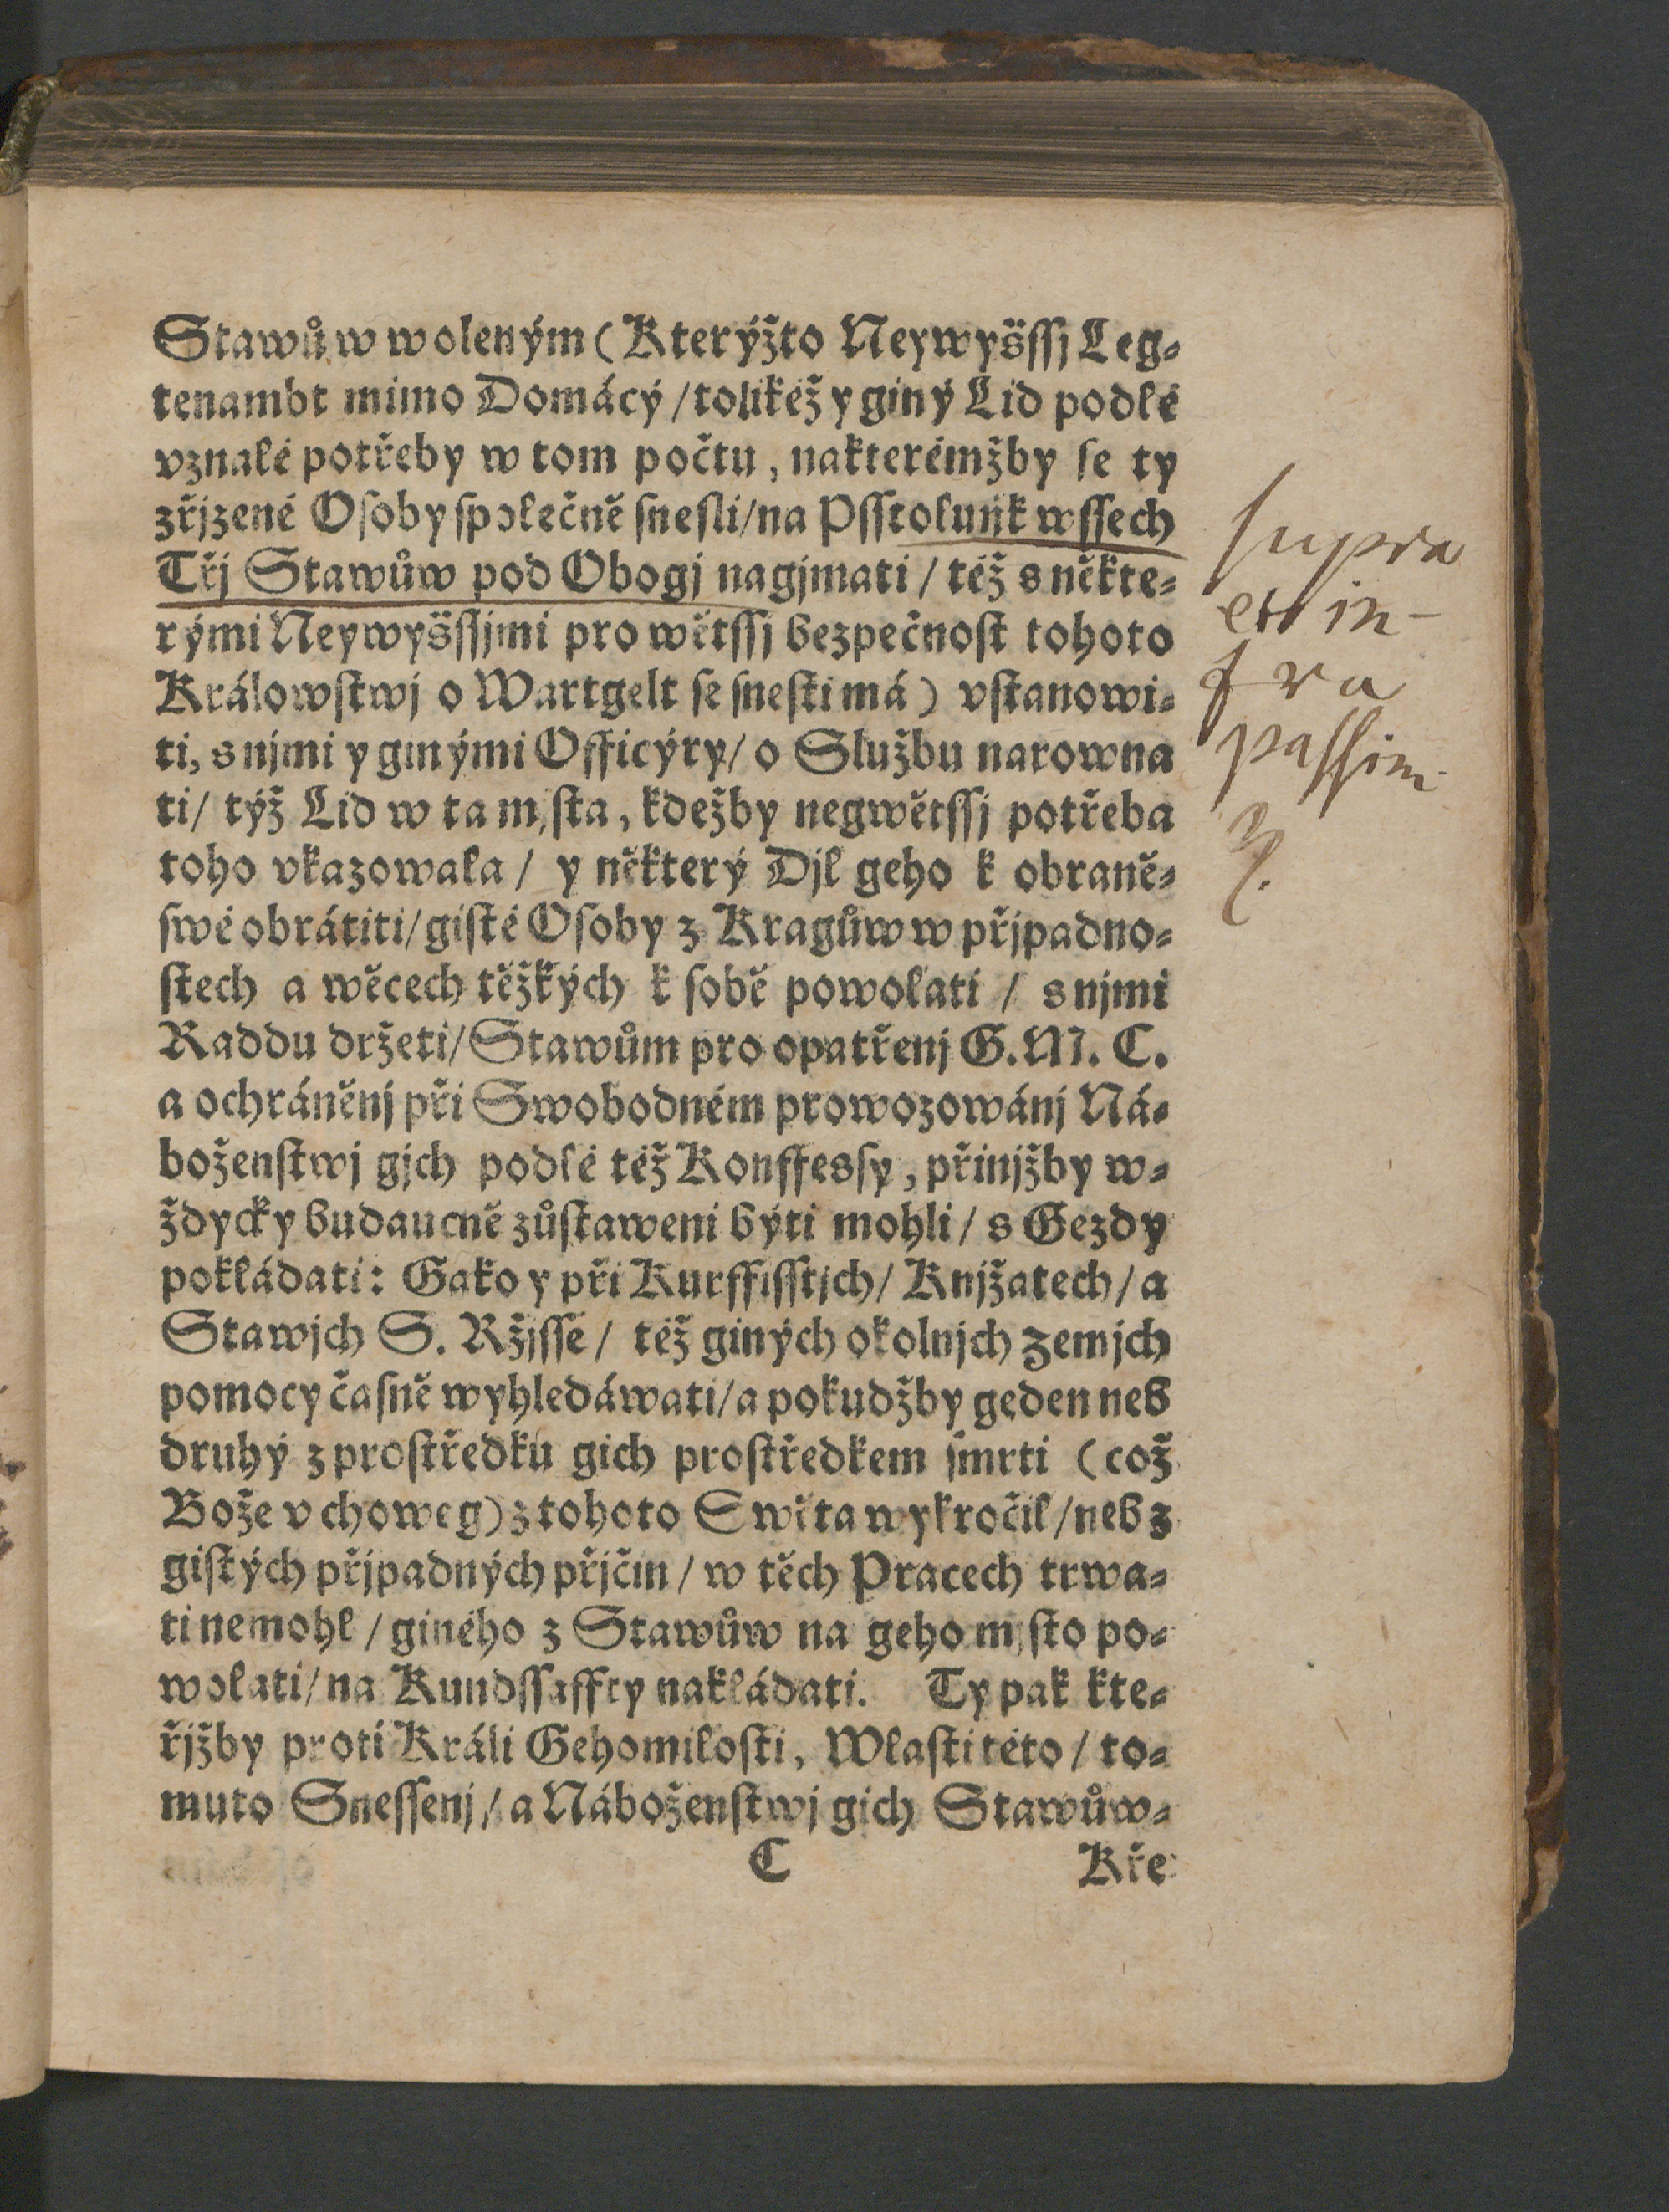 Stawůw woleným (Kterýžto Neywyšssj Leg-
tenambt mimo Domácý / tolikéž y giný Lid podlé
vznalé potřeby w tom počtu, nakterémžby se ty
zřjzené Osoby společně snesli / na Psstolunk wssech
Třj Stawůw pod Obogj nagjmati / též s někte-
rými Neywyšssjmi pro wětssj bezpečnost tohoto
Králowstwj o Wartgelt se snesti má) vstanowi-
ti, s njmi y ginými Officýry / o Službu narowna
ti / týž Lid w ta mjsta, kdežby negwětssj potřeba
toho vkazowala / y některý Djl geho k obraně-
swé obrátiti / gisté Osoby z Kragůw w přjpadno-
stech a wěcech těžkých k sobě powolati / s njmi
Raddu držeti / Stawům pro opatřenj G. M. C.
a ochráněnj při Swobodném prowozowánj Ná-
boženstwj gjch podlé též Konffessy, přinjžby w-
ždycky budaucně zůstaweni býti mohli / s Gezdy
pokládati: Gako y při Kurffisstjch / Knjžatech / a
Stawjch S. Ržjsse / též giných okolnjch zemjch
pomocy časně wyhledáwati / a pokudžby geden neb
druhý z prostředku gich prostředkem smrti (což
Bože vchoweg) z tohoto Swěta wykročil / neb z
gistých přjpadných přjčin / w těch Pracech trwa-
ti nemohl / giného z Stawůw na geho mjsto po-
wolati / na Kundssaffty nakládati. Ty pak kte-
řjžby proti Králi Gehomilosti, Wlasti této / to-
muto Snessenj / a Náboženstwj gich Stawůw-
C Kře
supra
et in-
fra
passim